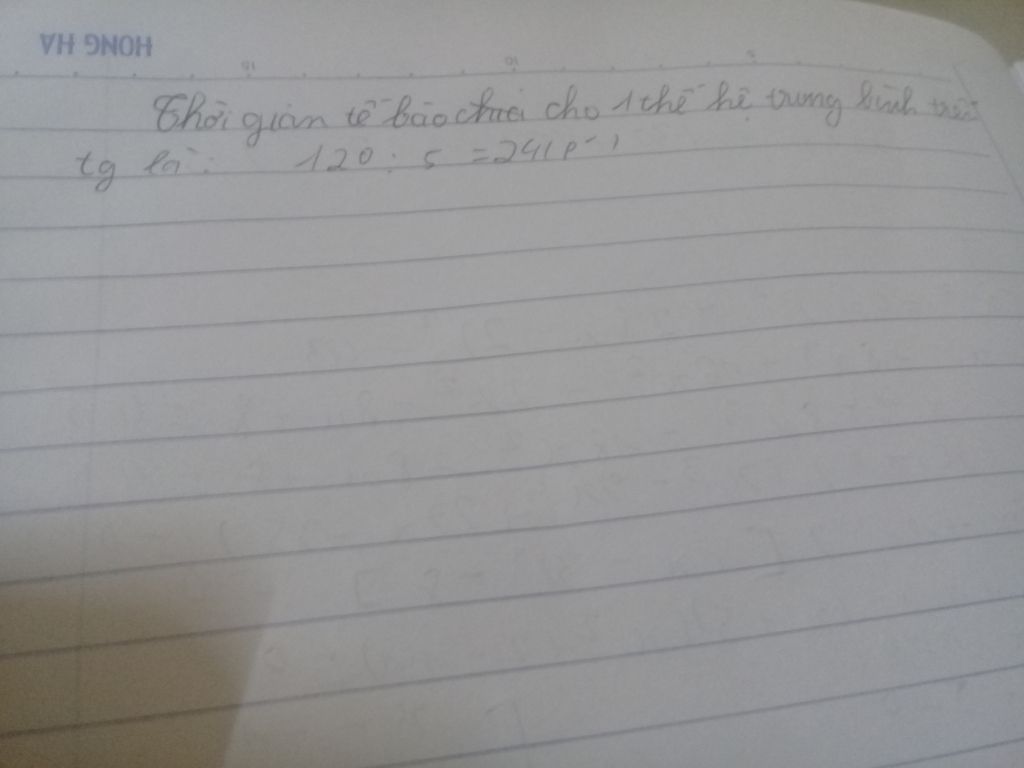 HONG HA
15 10 5
Thời gian tế bào chia cho 1 thế hệ trung bình trên
tg là: 120 : 5 = 24 (p)